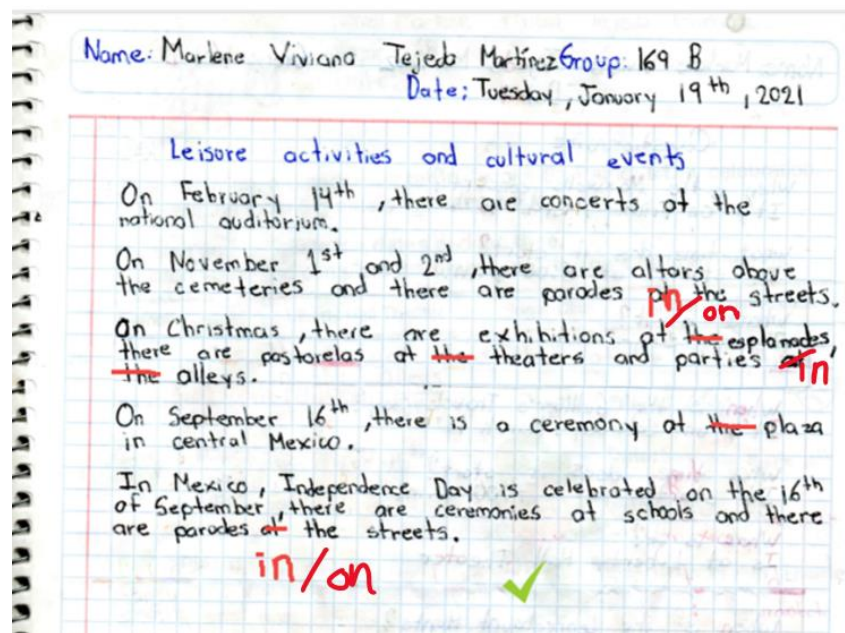 Name: Marlene Viviana Tejeda Martínez Group: 169 B
Date: Tuesday, January 19th, 2021
Leisure activities and cultural events
On February 14th, there are concerts at the
national auditorium.
On November 1st and 2nd, there are altars above
the cemeteries and there are parades in/on the streets.
On Christmas, there are exhibitions at the esplanades,
there are pastorelas at the theaters and parties in
the alleys.
On September 16th, there is a ceremony at the plaza
in central Mexico.
In Mexico, Independence Day is celebrated on the 16th
of September, there are ceremonies at schools and there
are parades at the streets.
in/on